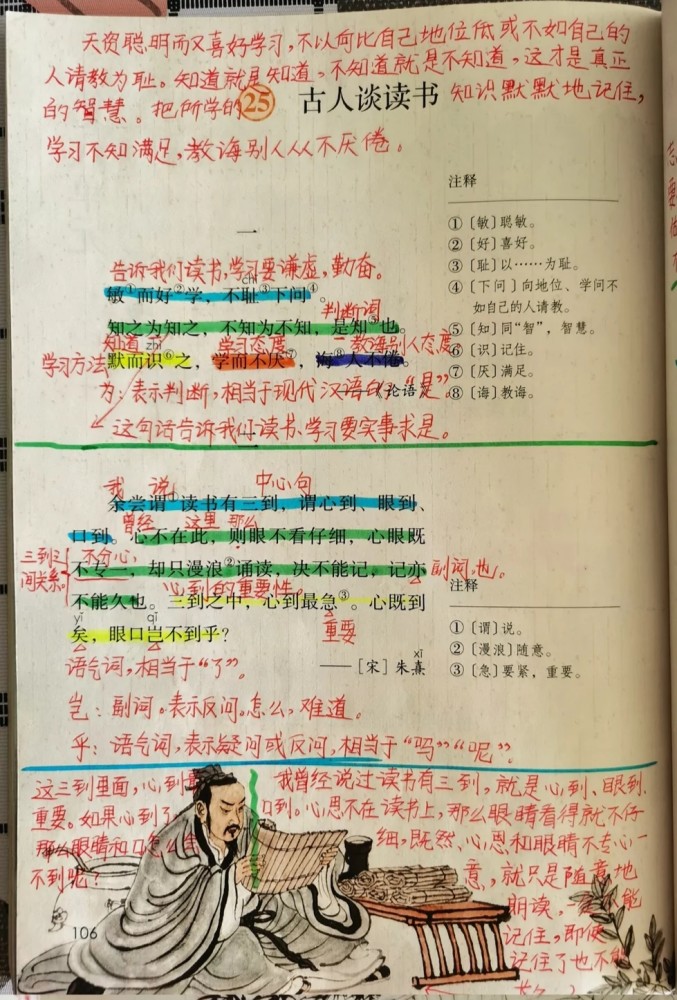 天资聪明而又喜好学习，不以向比自己地位低或不如自己的
人请教为耻。知道就是知道，不知道就是不知道，这才是真正
的智慧。把所学的知识默默地记住，
25 古人谈读书
学习不知满足，教诲别人从不厌倦。
注释
① 〔敏〕聪敏。
② 〔好〕喜好。
③ 〔耻〕以……为耻。
④ 〔下问〕向地位、学问不
如自己的人请教。
⑤ 〔知〕同“智”，智慧。
⑥ 〔识〕记住。
⑦ 〔厌〕满足。
⑧ 〔诲〕教诲。
一
告诉我们读书，学习要谦虚，勤奋。
chǐ
敏①而好②学，不耻③下问④。
判断词
知之为知之，不知为不知，是知⑤也。
知道 zhì 学习态度 教诲别人态度
学习方法 默而识⑥之，学而不厌⑦，诲⑧人不倦。
《论语》
为：表示判断，相当于现代汉语的“是”。
这句话告诉我们读书、学习要实事求是。
二
我 说 中心句
余尝谓①读书有三到，谓心到、眼到、
曾经 这里 那么
口到。心不在此，则眼不看仔细，心眼既
三到之
间关系。
不分心，
不专一，却只漫浪②诵读，决不能记，记亦
副词，也。
心到的重要性。
不能久也。三到之中，心到最急③。心既到
重要
yǐ qǐ
矣，眼口岂不到乎？
语气词，相当于“了”。
xī
——［宋］朱熹
注释
① 〔谓〕说。
② 〔漫浪〕随意。
③ 〔急〕要紧，重要。
岂：副词。表示反问。怎么，难道。
乎：语气词，表示疑问或反问，相当于“吗”“呢”。
这三到里面，心到最
重要。如果心到了
那么眼睛和口怎么会
不到呢？
我曾经说过读书有三到，就是心到、眼到、
口到。心思不在读书上，那么眼睛看得就不仔
细，既然心思和眼睛不专心一
意，就只是随意地
朗读，一定不能
记住，即使
记住了也不能
106